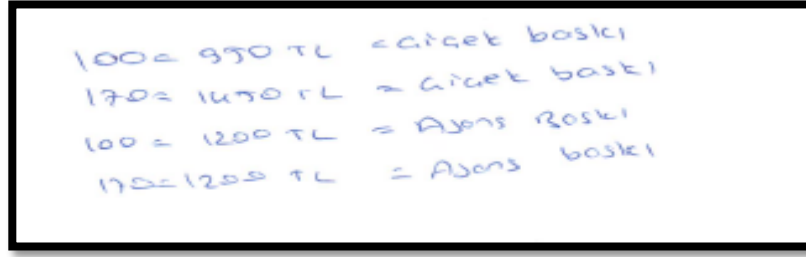 100= 990 TL = Çiçek baskı
170= 1490 TL = Çiçek baskı
100 = 1200 TL = Ajans Baskı
170=1200 TL = Ajans baskı